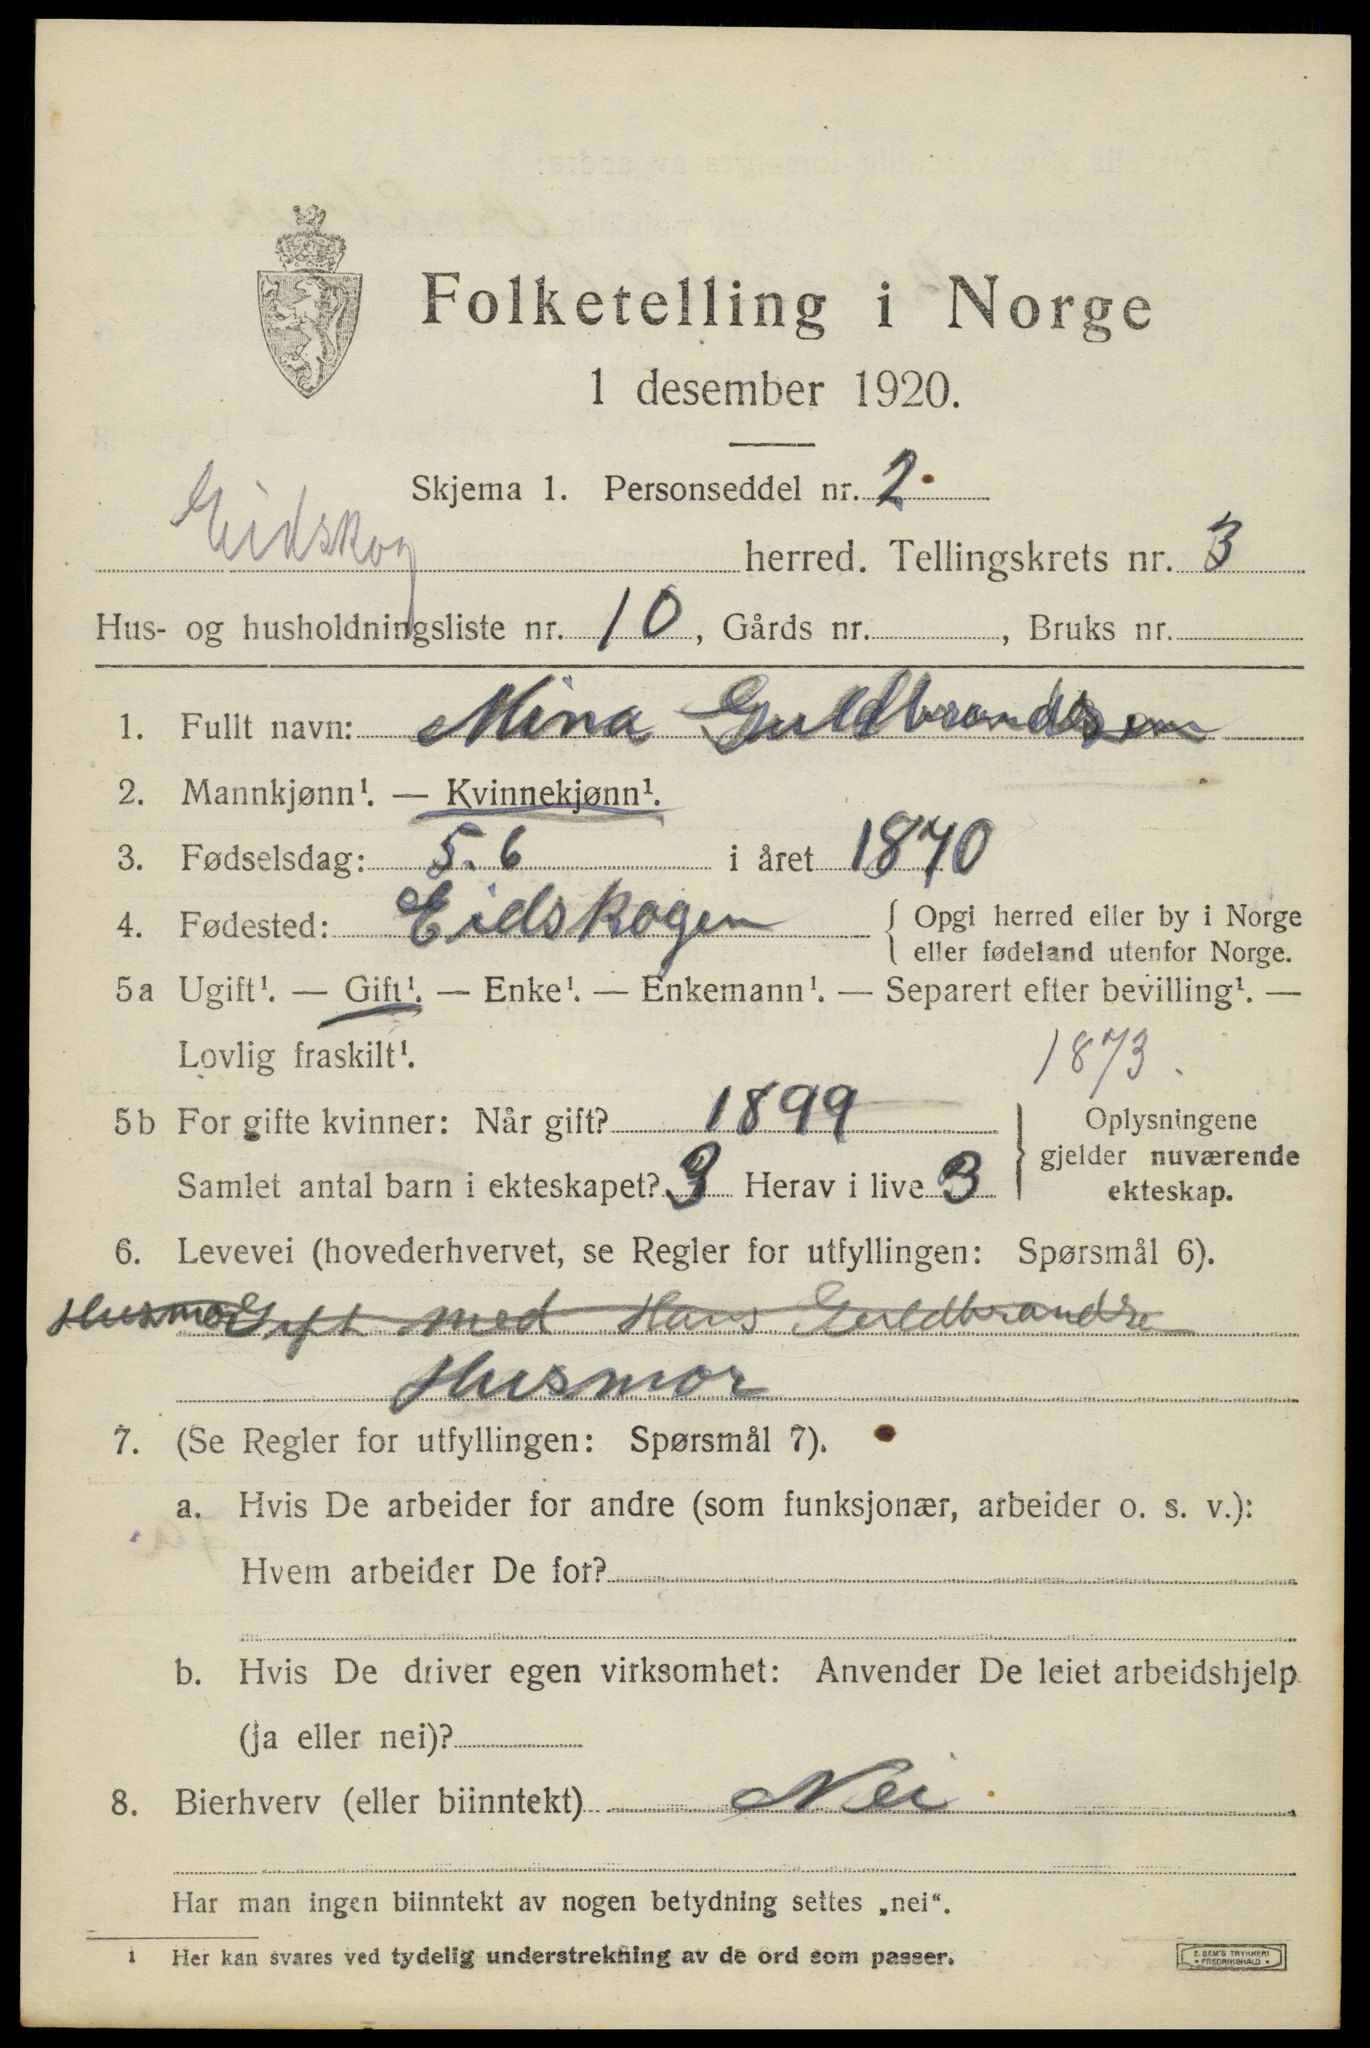 Folketelling i Norge
1 desember 1920.
Skjema 1. Personseddel nr. 2
Eidskog herred. Tellingskrets nr. 3
Hus- og husholdningsliste nr. 10, Gårds nr. , Bruks nr.
1. Fullt navn: Mina Guldbrandsen
2. Mannkjønn¹. — Kvinnekjønn¹.
3. Fødselsdag: 5. 6 i året 1870
4. Fødested: Eidskogen { Opgi herred eller by i Norge
eller fødeland utenfor Norge.
5a Ugift¹. — Gift¹. — Enke¹. — Enkemann¹. — Separert efter bevilling¹. —
Lovlig fraskilt¹.
1873.
5b For gifte kvinner: Når gift? 1899
Samlet antal barn i ekteskapet? 3 Herav i live 3
} Oplysningene
gjelder nuværende
ekteskap.
6. Levevei (hovederhvervet, se Regler for utfyllingen: Spørsmål 6).
Husmor Gift med Hans Guldbrandse
Husmor
7. (Se Regler for utfyllingen: Spørsmål 7).
a. Hvis De arbeider for andre (som funksjonær, arbeider o. s. v.):
Hvem arbeider De for?
b. Hvis De driver egen virksomhet: Anvender De leiet arbeidshjelp
(ja eller nei)?
8. Bierhverv (eller biinntekt) Nei
Har man ingen biinntekt av nogen betydning settes „nei“.
1 Her kan svares ved tydelig understrekning av de ord som passer.
E. SEM'S TRYKKERI
* FREDRIKSHALD *